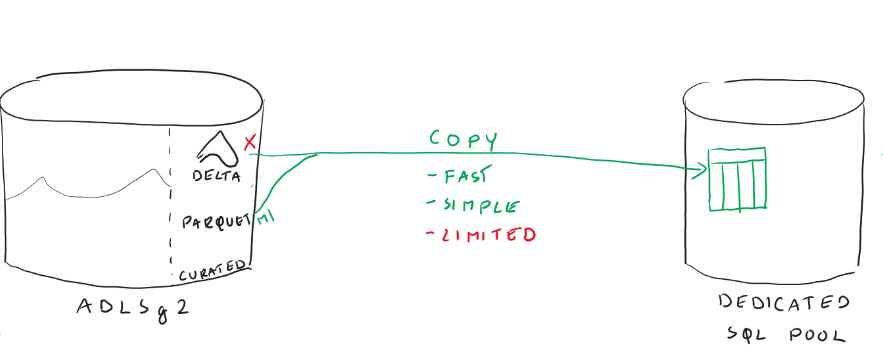 X
DELTA
PARQUET MI
CURATED
ADLSg2
COPY
- FAST
- SIMPLE
- LIMITED
DEDICATED
SQL POOL